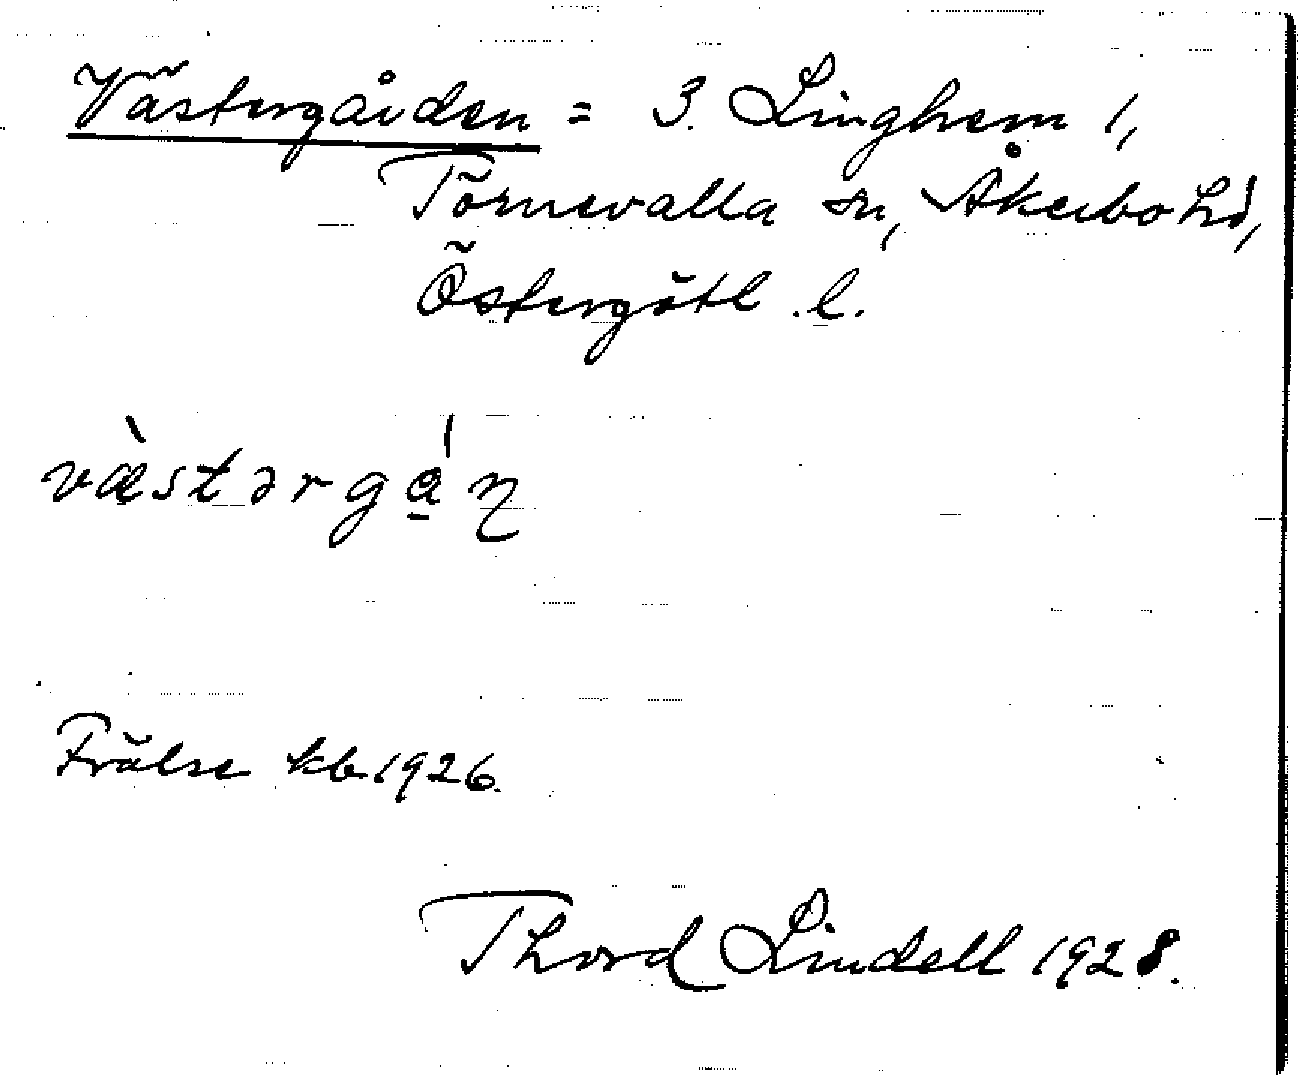 Västergården = 3. Linghem 1,
Törnevalla sn, Åkerbo hd,
Östergötl. l.
væ̀stərgǻ̲ɳ
Frälse kb. 1926.
Thord Lindell 1928.